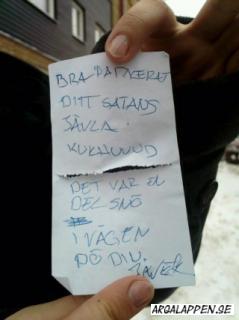 BRA PARKERAT
DITT SATANS
JÄVLA
KUKHUVUD
DET VAR EN
DEL SNÖ
I VÄGEN
PÅ DIN
ARGALAPPEN.SE